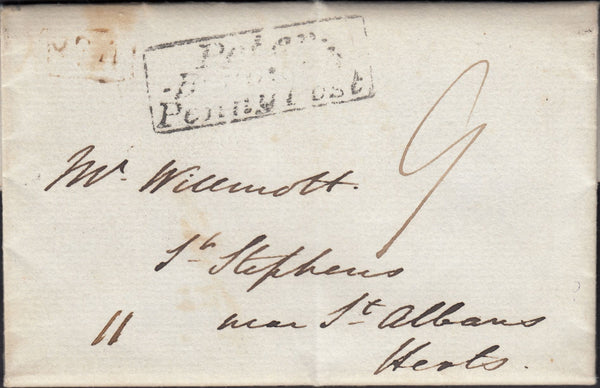 Penny Post
9
Mr. Willmott.
St. Stephens
11 near St. Albans
Herts.